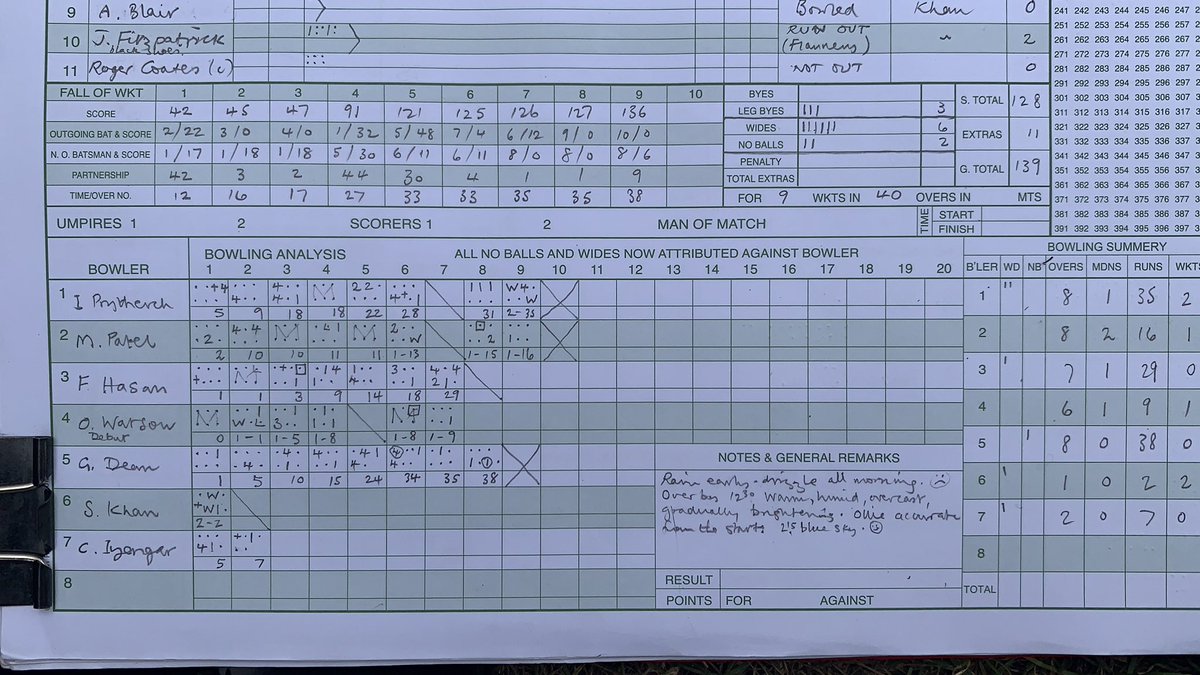 9 A. Blair Bowled Khan 0
10 J. Fitzpatrick RUN OUT 2
black shoes (Flannery)
11 Roger Coates (c) NOT OUT 0
FALL OF WKT 1 2 3 4 5 6 7 8 9 10
SCORE 42 45 47 91 121 125 126 127 136
OUTGOING BAT & SCORE 2/22 3/0 4/0 1/32 5/48 7/4 6/12 9/0 10/0
N. O. BATSMAN & SCORE 1/17 1/18 1/18 5/30 6/11 6/11 8/0 8/0 8/6
PARTNERSHIP 42 3 2 44 30 4 1 1 9
TIME/OVER NO. 12 16 17 27 33 33 35 35 38
BYES
LEG BYES 3
WIDES 6
NO BALLS 2
PENALTY
TOTAL EXTRAS
S. TOTAL 128
EXTRAS 11
G. TOTAL 139
FOR 9 WKTS IN 40 OVERS IN MTS
241 242 243 244 245 246 247
251 252 253 254 255 256 257
261 262 263 264 265 266 267
271 272 273 274 275 276 277
281 282 283 284 285 286 287
291 292 293 294 295 296 297
301 302 303 304 305 306 307
311 312 313 314 315 316 317
321 322 323 324 325 326 327
331 332 333 334 335 336 337
341 342 343 344 345 346 347
351 352 353 354 355 356 357
361 362 363 364 365 366 367
371 372 373 374 375 376 377
381 382 383 384 385 386 387
391 392 393 394 395 396 397
UMPIRES 1 2 SCORERS 1 2 MAN OF MATCH
TIME START
FINISH
BOWLING ANALYSIS ALL NO BALLS AND WIDES NOW ATTRIBUTED AGAINST BOWLER
BOWLER 1 2 3 4 5 6 7 8 9 10 11 12 13 14 15 16 17 18 19 20
1 I Prytherch 5 9 18 18 22 28 31 2-35
2 M. Patel 2 10 10 11 11 1-13 1-15 1-16
3 F Hasan 1 1 3 9 14 18 29
4 O. Watson 0 1-1 1-5 1-8 1-8 1-9
Debut
5 G. Dean 1 5 10 15 24 34 35 38
6 S. Khan 2-2
7 C. Iyengar 5 7
8
BOWLING SUMMARY
B'LER WD NB OVERS MDNS RUNS WKTS
1 8 1 35 2
2 8 2 16 1
3 7 1 29 0
4 6 1 9 1
5 8 0 38 0
6 1 0 2 2
7 2 0 7 0
8
TOTAL
NOTES & GENERAL REMARKS
Rain early - drizzle all morning.
Over by 1230 Warm, humid, overcast,
gradually brightening. Ollie accurate
from the start. 215 blue sky.
RESULT
POINTS FOR AGAINST